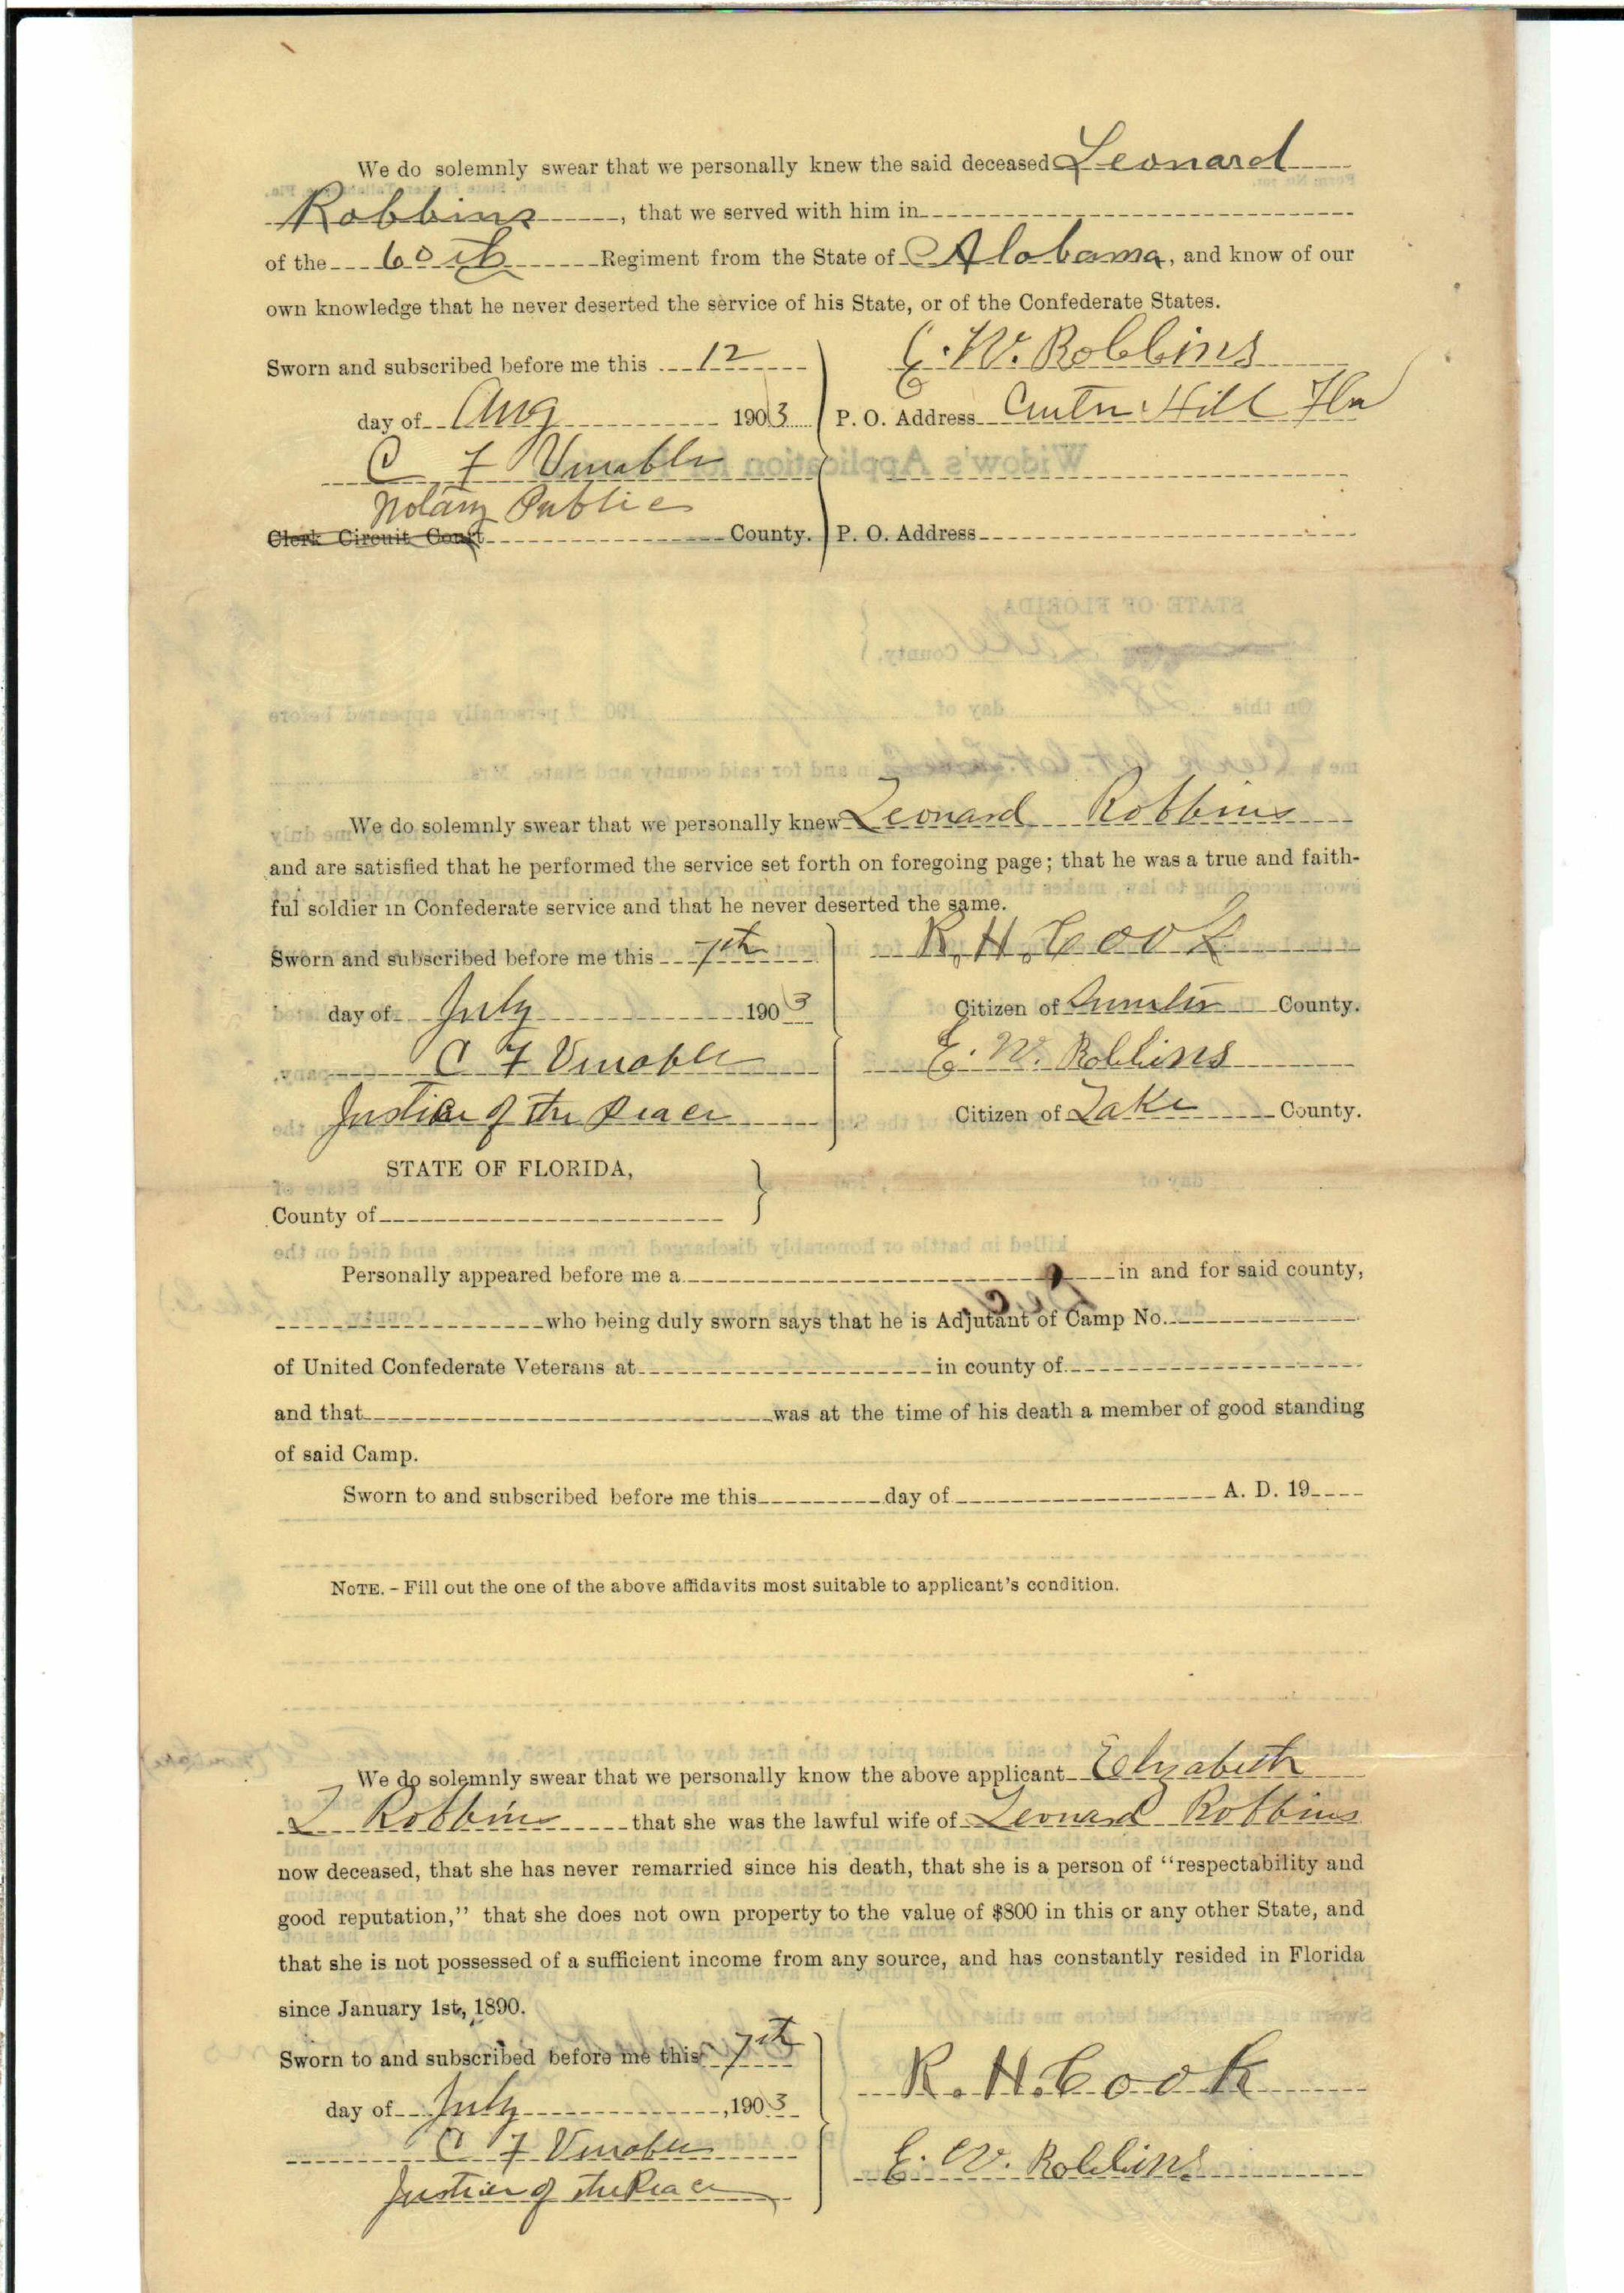 We do solemnly swear that we personally knew the said deceased Leonard
Robbins, that we served with him in
of the 60th Regiment from the State of Alabama, and know of our
own knowledge that he never deserted the service of his State, or of the Confederate States.
Sworn and subscribed before me this 12
E. W. Robbins
day of Aug 1903
P. O. Address Center Hill Fla
C F Venable
Widow's Application for
Notary Public
Clerk Circuit Court County.
P. O. Address
STATE OF FLORIDA
Lake County.
On this 28th day of 190 personally appeared before
in and for said county and State, Mrs.
We do solemnly swear that we personally knew Leonard Robbins
and are satisfied that he performed the service set forth on foregoing page; that he was a true and faith-
ful soldier in Confederate service and that he never deserted the same.
Sworn and subscribed before me this 7th
R. H. Cook
day of July 1903
Citizen of Sumter County.
C F Venable
E. W. Robbins
Justice of the Peace
Citizen of Lake County.
STATE OF FLORIDA,
County of
Personally appeared before me a in and for said county,
who being duly sworn says that he is Adjutant of Camp No.
of United Confederate Veterans at in county of
and that was at the time of his death a member of good standing
of said Camp.
Sworn to and subscribed before me this day of A. D. 19
NOTE. - Fill out the one of the above affidavits most suitable to applicant's condition.
We do solemnly swear that we personally know the above applicant Elizabeth
L Robbins that she was the lawful wife of Leonard Robbins
now deceased, that she has never remarried since his death, that she is a person of "respectability and
good reputation," that she does not own property to the value of $800 in this or any other State, and
that she is not possessed of a sufficient income from any source, and has constantly resided in Florida
since January 1st, 1890.
Sworn to and subscribed before me this 7th
R. H. Cook
day of July, 1903
C F Venable
E. W. Robbins
Justice of the Peace